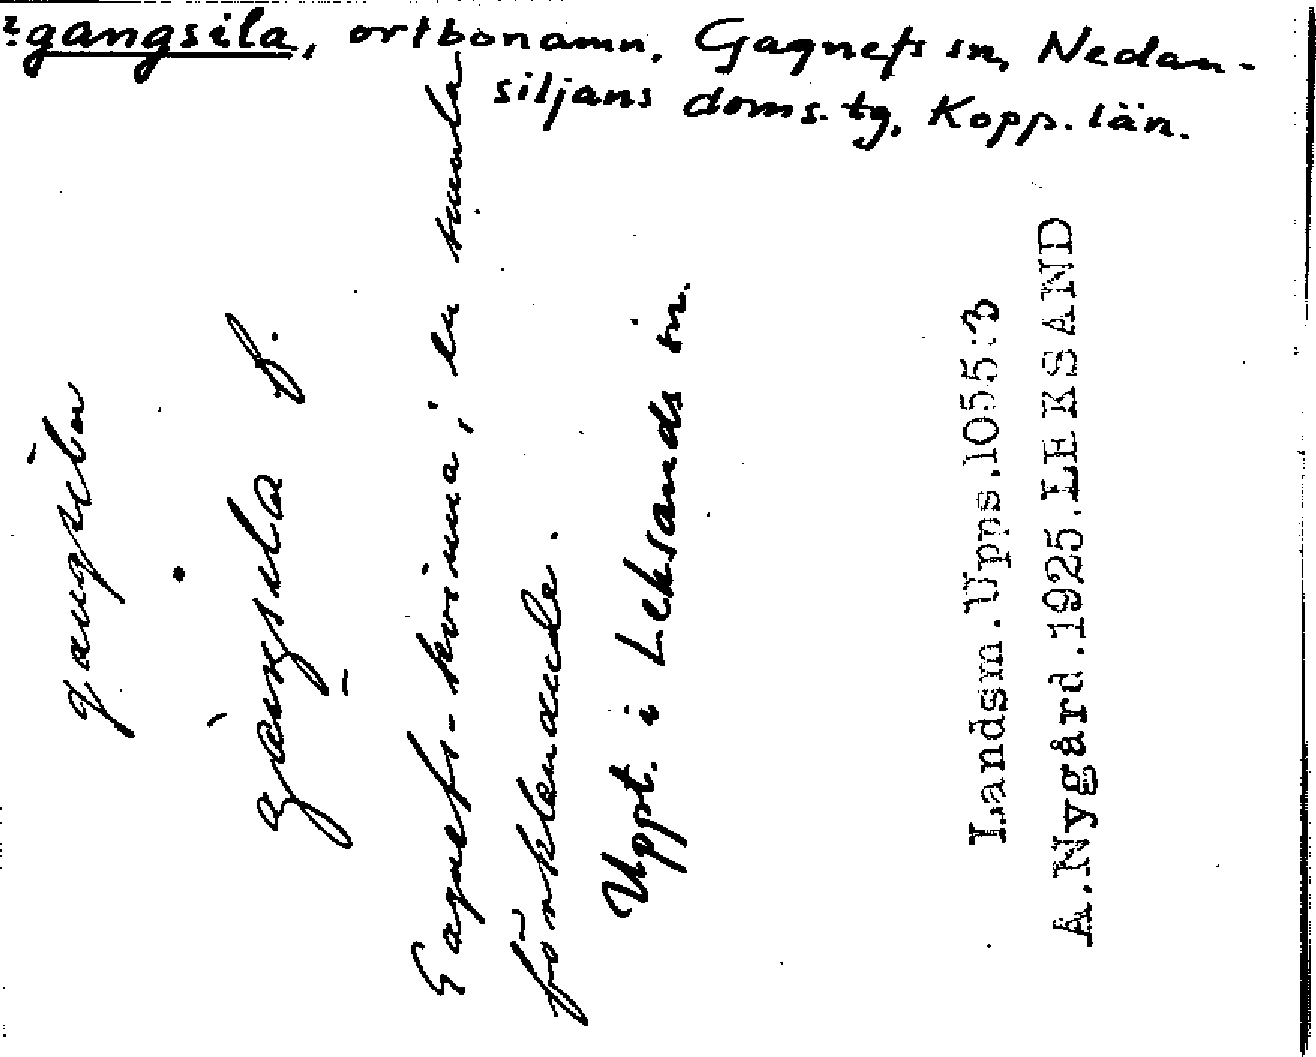 gangsila, ortbonamn, Gagnefs sn, Nedan-
siljans doms. tg, Kopp. län.
f.
Gagnefs-kvinna; en
förklenande.
Uppt. i Leksands sn.
Landsm. Upps. 1055:3
A. Nygård. 1925. LEKSAND